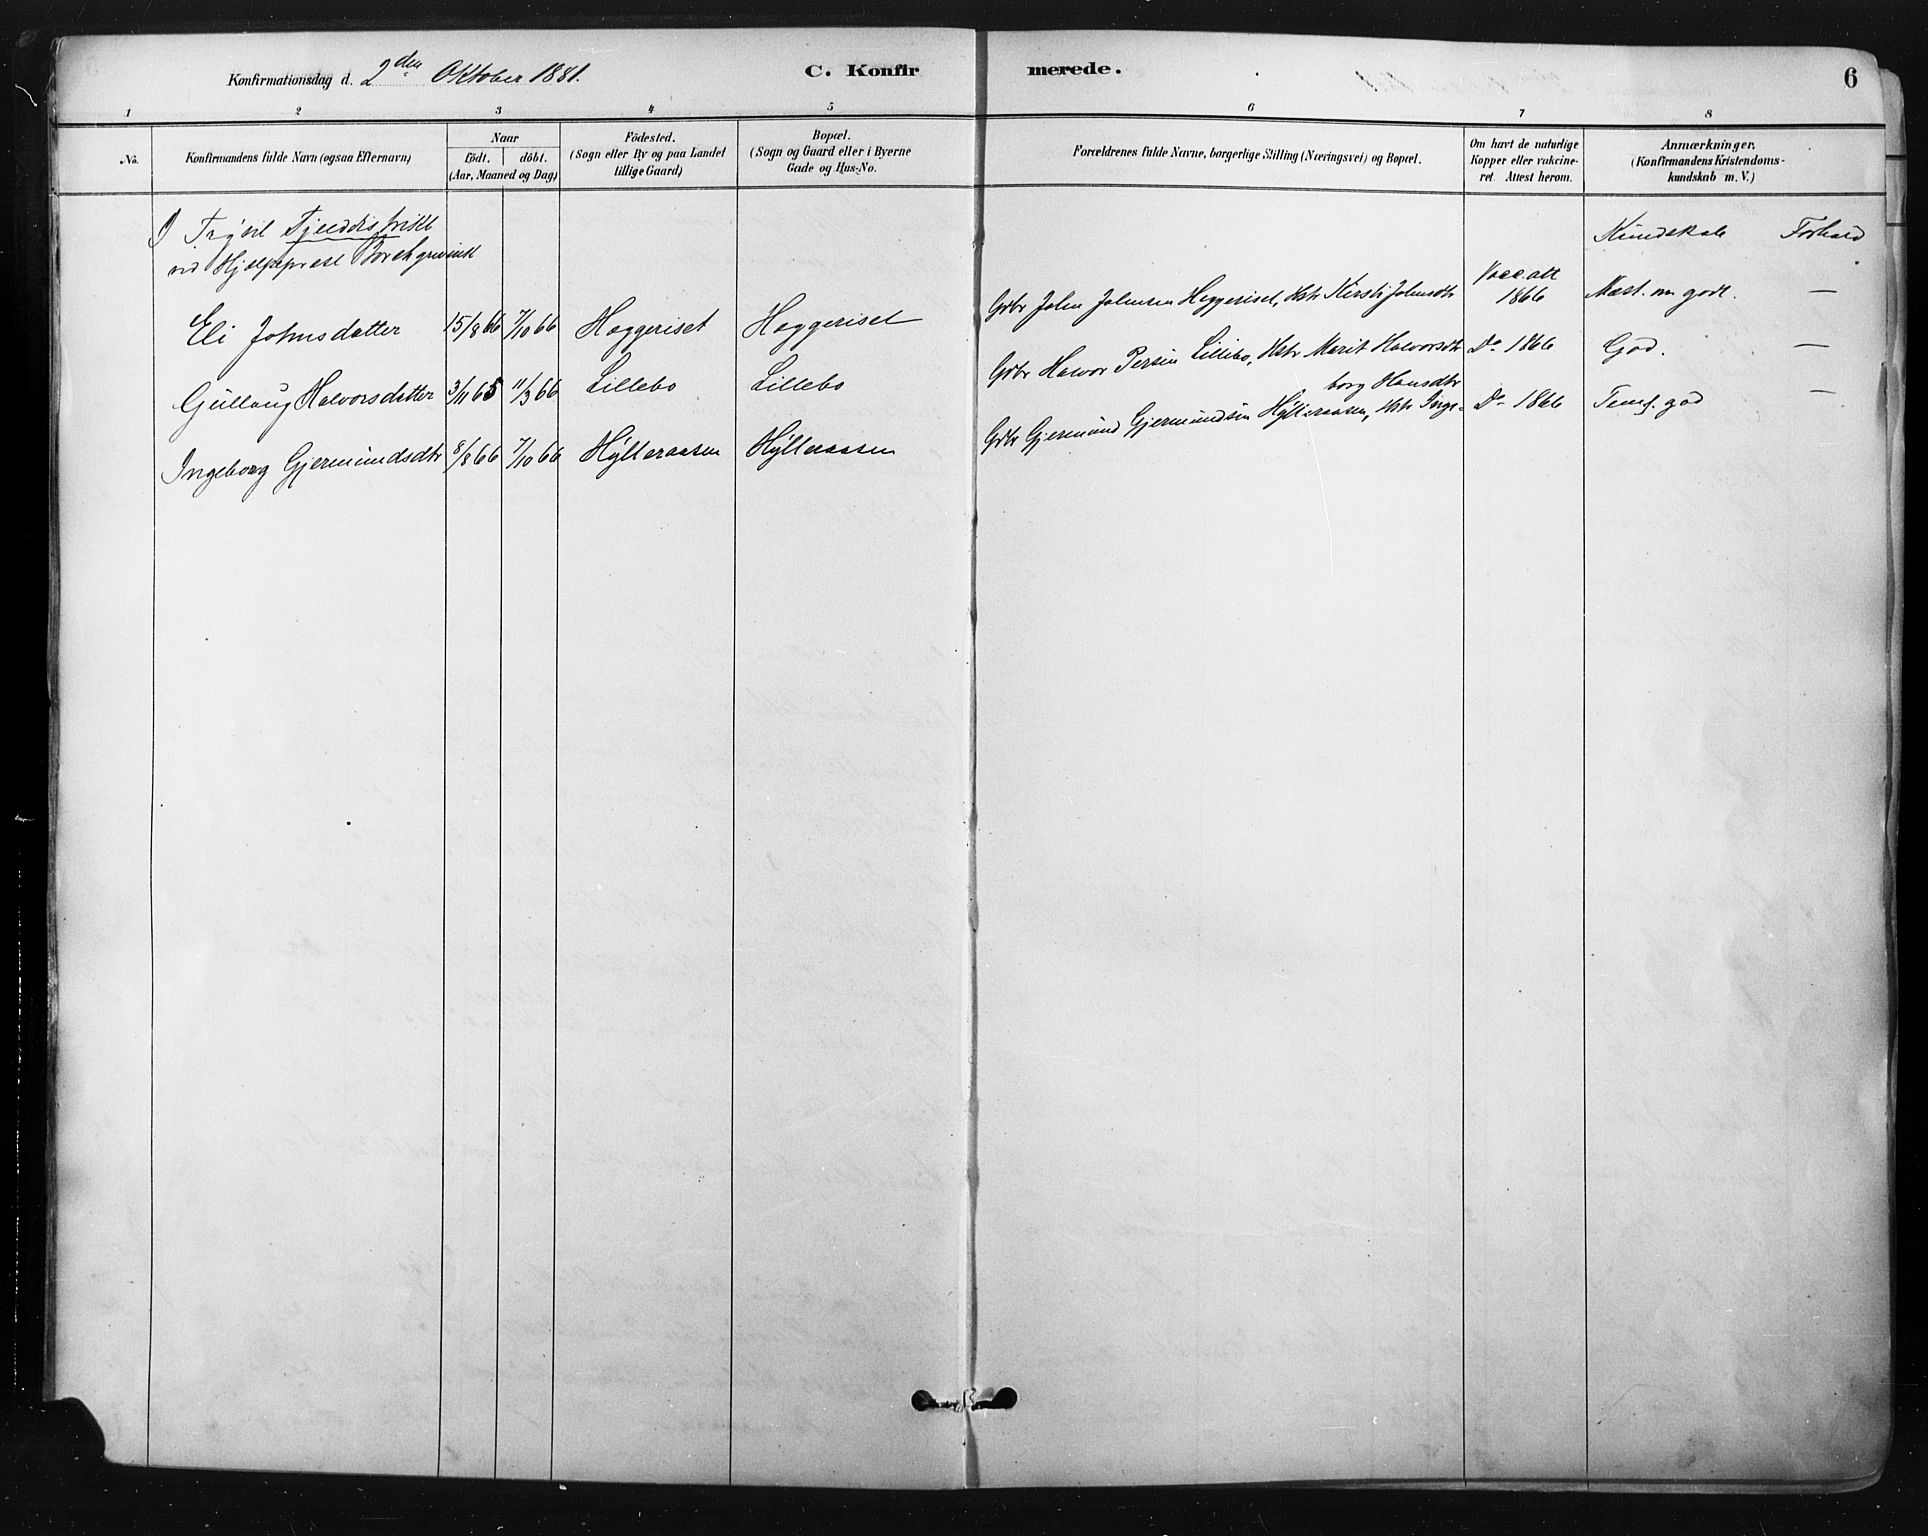 Konfirmationsdag d. 2den Oktober 1881. C. Konfirmerede. 6
1 2 3 4 5 6 7 8
No.
Konfirmandens fulde Navn (ogsaa Efternavn)
Naar
födt. döbt.
(Aar, Maaned og Dag)
Födested.
(Sogn eller By og paa Landet
tillige Gaard)
Bopæl.
(Sogn og Gaard eller i Byerne
Gade og Hus-No.
Forældrenes fulde Navne, borgerlige Stilling (Næringsvei) og Bopæl.
Om havt de naturlige
Kopper eller vakcine-
ret. Attest herom.
Anmærkninger.
(Konfirmandens Kristendoms-
kundskab m. V.)
I Trysil Fjelddistrikt
ved Hjælpeprest Borchgrevink
Kundskab Forhold
Eli Johnsdatter 15/8 66 7/10 66 Heggeriset Heggeriset Gdbr John Johnsen Heggeriset, Hstr Kirsti Johnsdtr Vacc. att 1866 Mest. m. godt. —
Gullaug Halvorsdatter 3/11 65 11/3 66 Lillebo Lillebo Gdbr Halvor Persen Lillebo, Hstr Marit Halvorsdtr Do 1866 God. —
Ingeborg Gjermundsdtr 8/8 66 7/10 66 Hylleraasen Hylleraasen Gdbr Gjermund Gjermundsen Hylleraasen, Hstr Inge-
borg Hansdtr Do 1866 Teml. god —